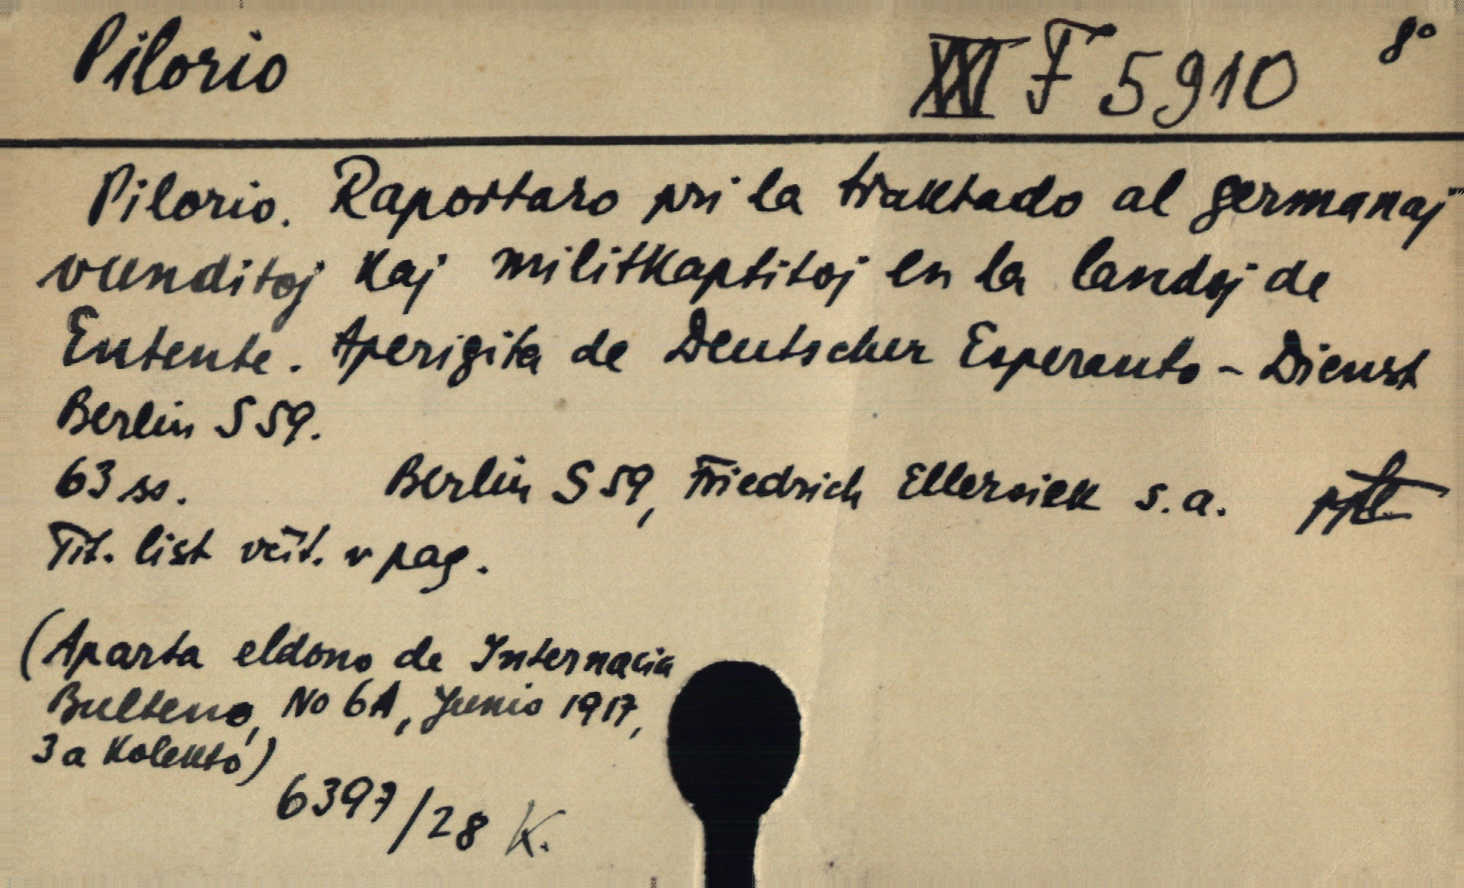 Pilorio XXI F 5910 8°
Pilorio. Raportaro pri la traktado al germanaj
vunditoj kaj militkaptitoj en la landoj de
Entente. Aperigita de Deutscher Esperanto-Dienst
Berlin S 59.
63 ss. Berlin S 59, Friedrich Ellersiek s.a. ppl
Tit. list včít. v pag.
(Aparta eldono de Internacia
Bulteno, No 6A, Junio 1917,
3a Kolekto)
6397/28 K.